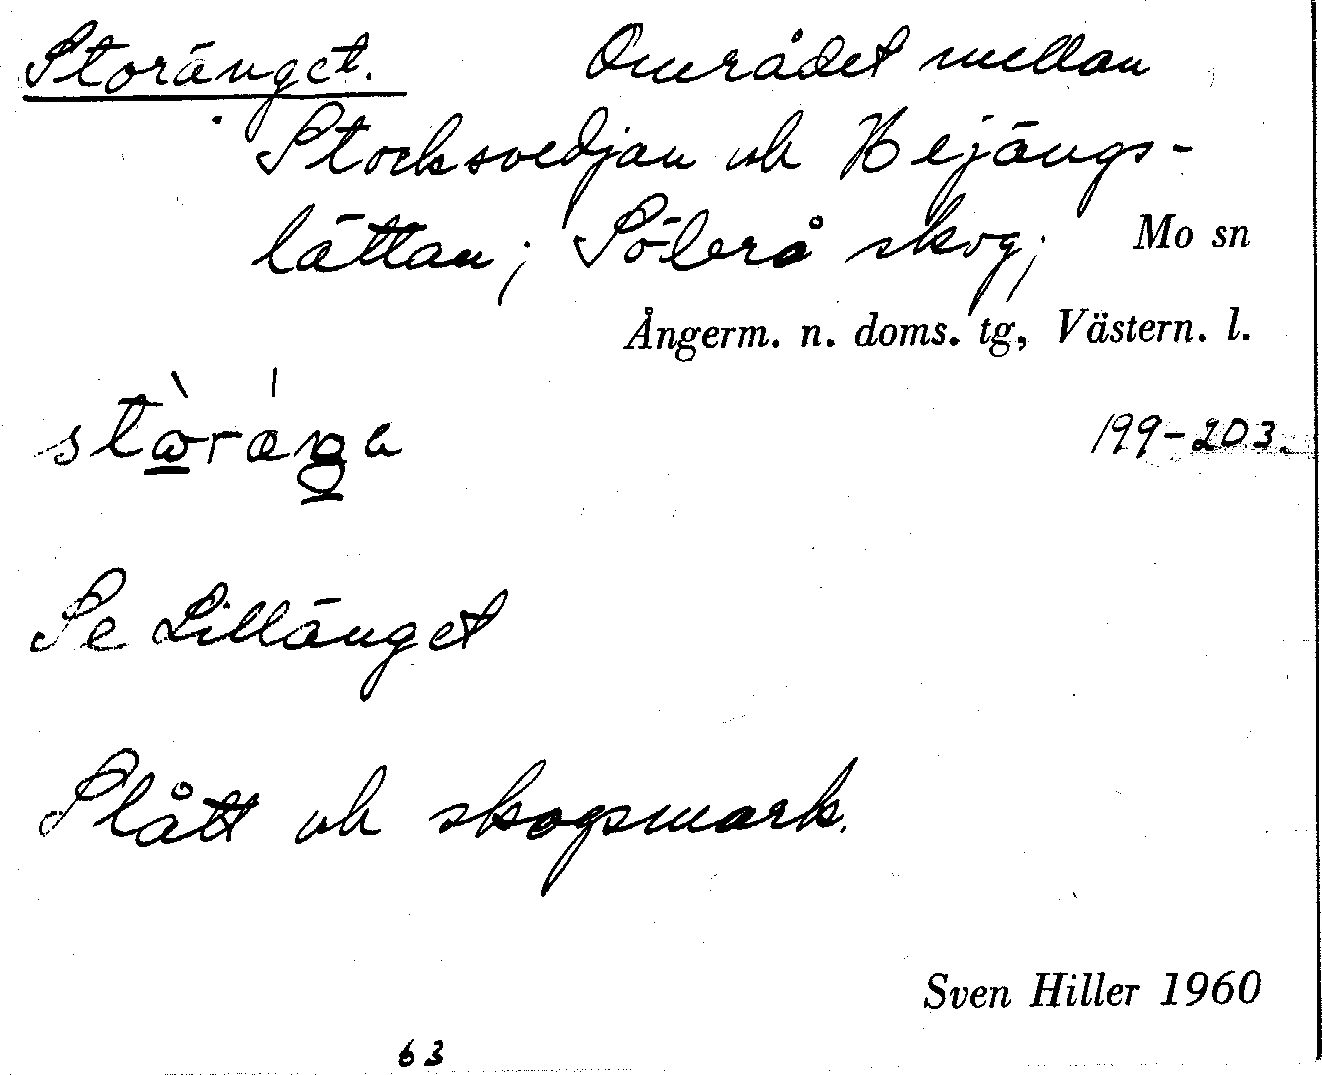 Storänget. Området mellan
Stocksvedjan och Hejängs-
lättan; Sölerå skog; Mo sn
Ångerm. n. doms. tg, Västern. l.
199-203.
Se Lillänget
Slått och skogsmark.
Sven Hiller 1960
63